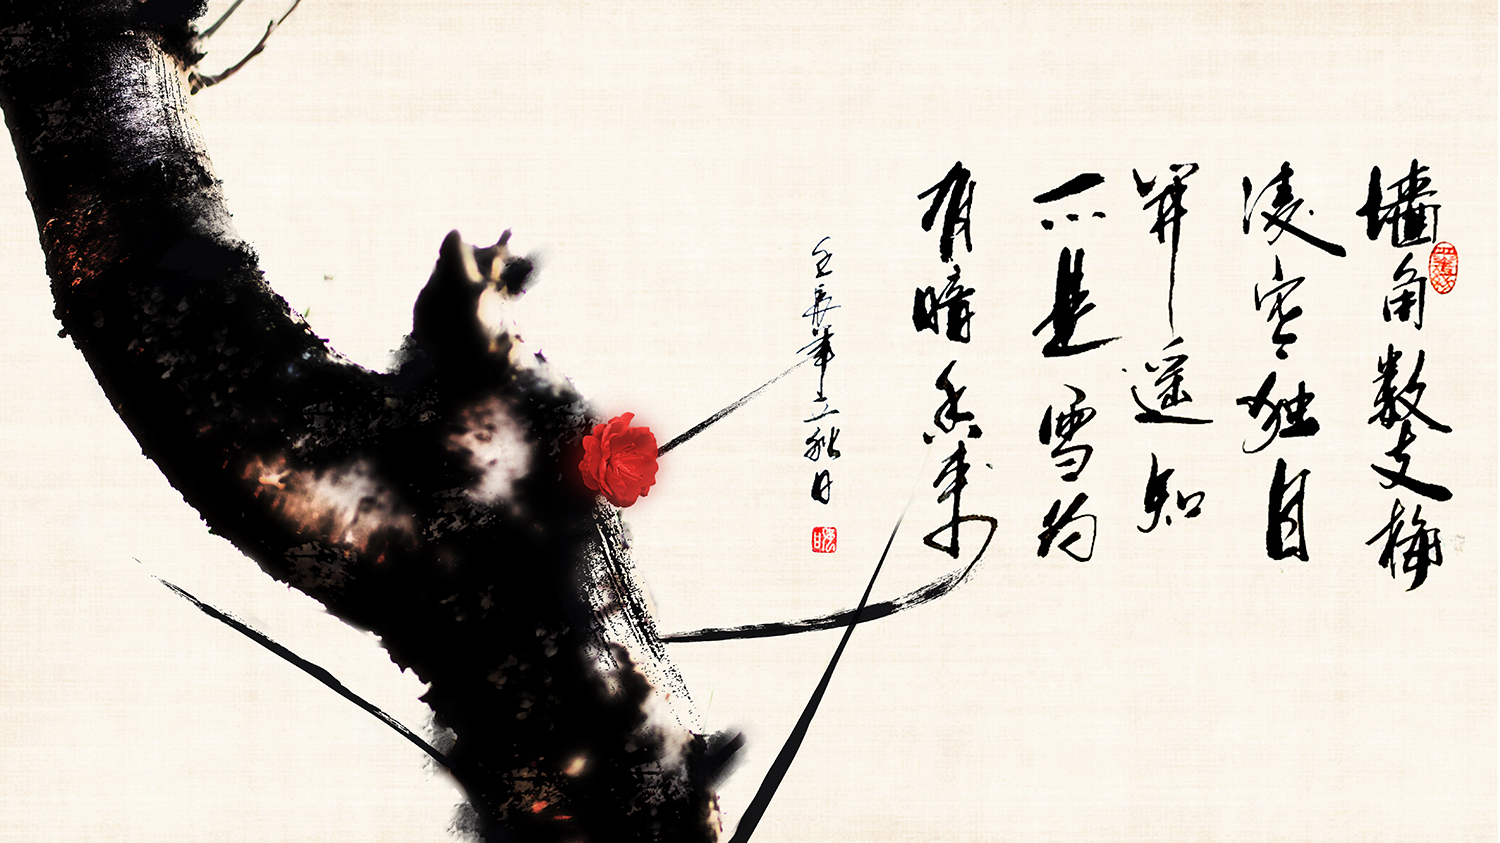 墙角数支梅
凌寒独自
開遥知
不是雪为
有暗香来
壬辰年立秋日